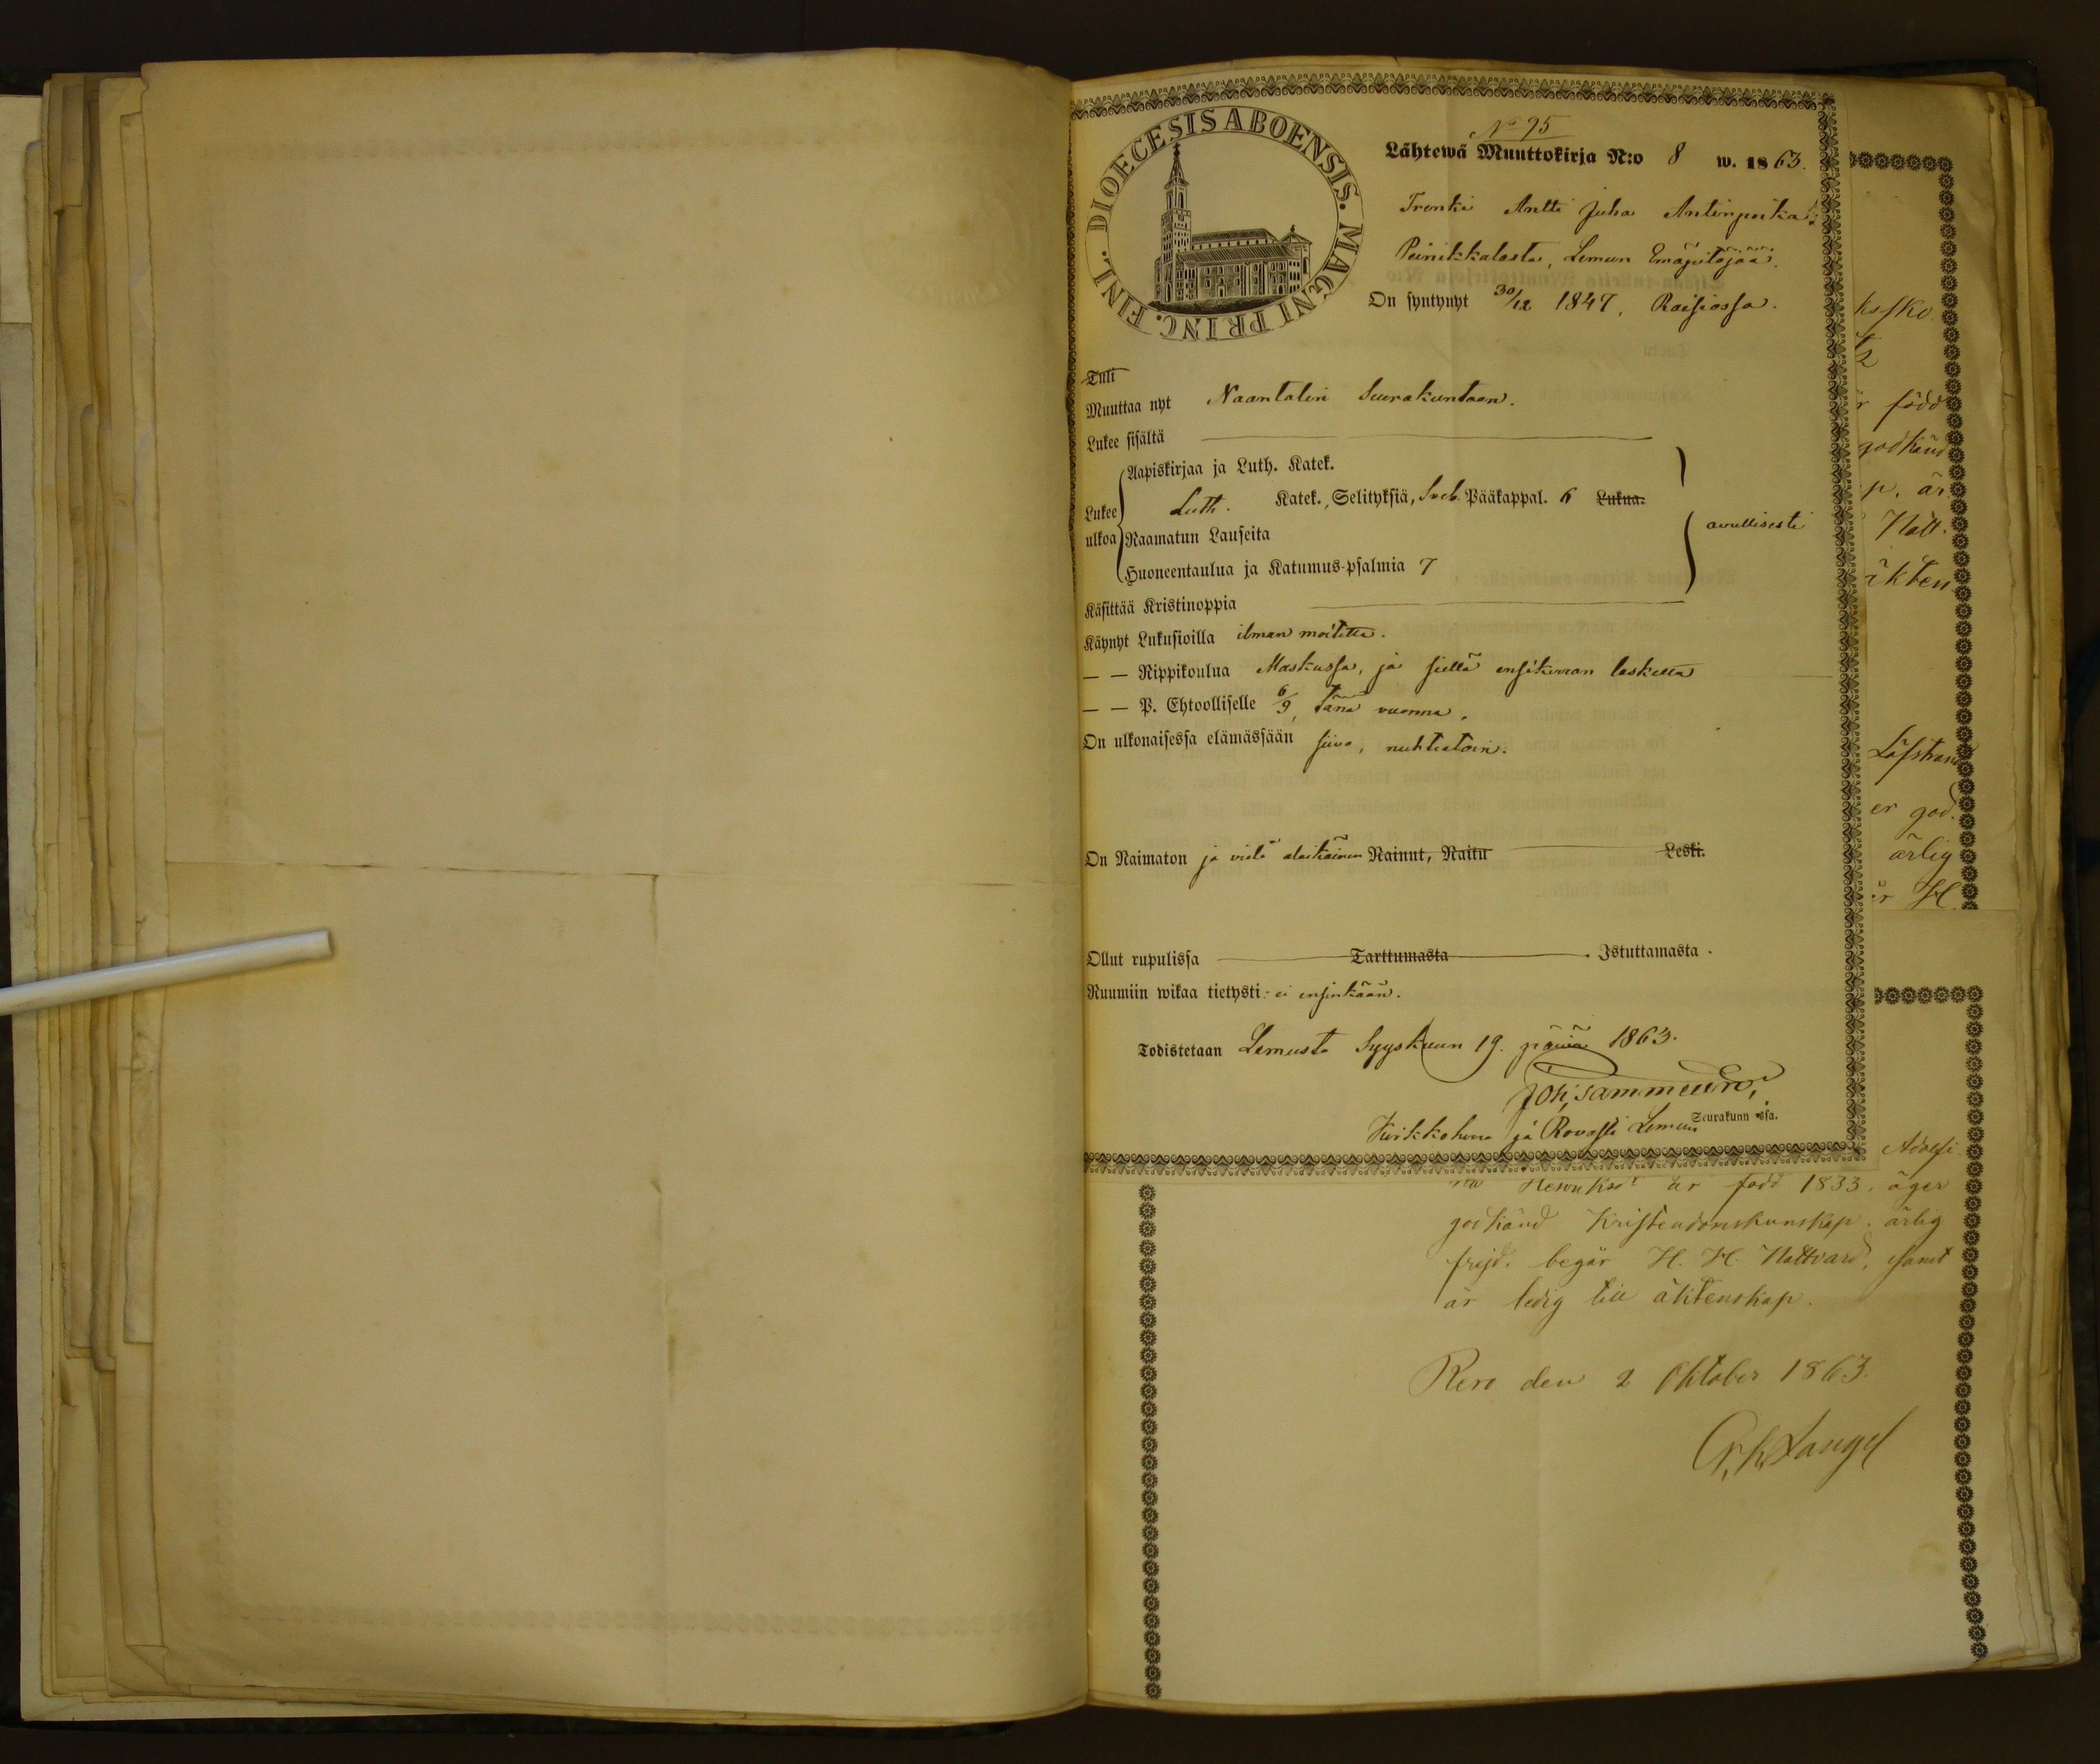 DIOECESIS ABOENSIS. MAGNI PRINC. FINL.
No 95
Lähtewä Muuttokirja N:o 8 w. 1863.
Trenki Antti Juha Antinpoika
Peinikkalasta, Lemun Emäpitäjää.
On syntynyt 30/12 1847, Raisiossa.
Tuli
Muuttaa nyt Naantalin Seurakuntaan.
Lukee sisältä
Aapiskirjaa ja Luth. Katek.
Lukee ulkoa
Luth. Katek., Selityksiä, Sveb. Pääkappal. 6 Lukua.
Raamatun Lauseita
avullisesti
Huoneentaulua ja Katumus-psalmia 7
Käsittää Kristinoppia
Käynyt Lukusioilla ilman moitetta.
— — Rippikoulua Maskussa, ja siellä ensikerran laskettu
— — P. Ehtoolliselle 6/9, tänä vuonna.
On ulkonaisessa elämässään siivo, nuhteetoin.
On Naimaton ja vielä alaikäinen Nainut, Naitu Leski.
Ollut rupulissa Tarttumasta Istuttamasta.
Ruumiin wikaa tietysti: ei ensinkään.
Todistetaan Lemusta Syyskuun 19. päivä 1863.
Joh. Sammeur
Kirkkoherra ja Rovasti Lemun Seurakunnassa.
född
godkänd
p. är
Natt
äkten
er god.
ärlig
är H.
Adolfi
är född 1833. äger
godkänd Kristendomskunskap. ärlig
frejd. begär H. H. Nattvard, samt
är ledig till äktenskap.
Reso den 2 Oktober 1863.